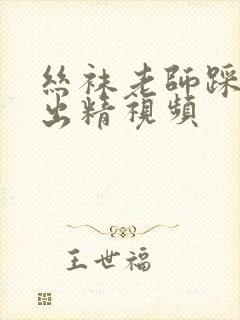 絲袜老師踩
出精視頻
王世福